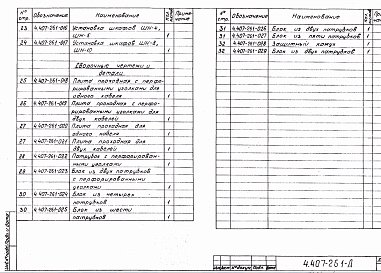 № стр. Обозначение Наименование Кол. Приме-чание
23 4.407-261-016 Установка шкафов ШН-4,
ШН-6 1
24 4.407-261-017 Установка шкафов ШН-8,
ШН-10 1
Сборочные чертежи и
детали.
25 4.407-261-018 Плита проходная с перфо-
рированными уголками для
одного кабеля 1
26 4.407-261-019 Плита проходная с перфо-
рированными уголками для
двух кабелей 1
27 4.407-261-020 Плита проходная для
одного кабеля 1
27 4.407-261-021 Плита проходная для
двух кабелей 1
28 4.407-261-022 Патрубок с перфорирован-
ными уголками 1
29 4.407-261-023 Блок из двух патрубков
с перфорированными
уголками 1
30 4.407-261-024 Блок из четырех
патрубков 1
30 4.407-261-025 Блок из шести
патрубков 1
№ стр. Обозначение Наименование Кол.
31 4.407-261-026 Блок из двух патрубков 1
31 4.407-261-027 Блок из пяти патрубков 1
32 4.407-261-028 Защитный кожух 1
32 4.407-261-029 Блок из двух патрубков 1
4.407-261-Д